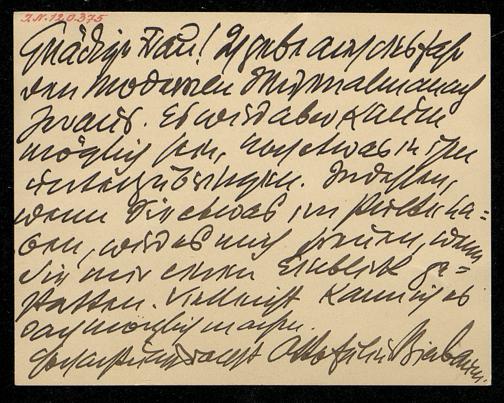 I.N. 120.375
Gnädige Frau! Ich gebe auch dies Jahr
den Modernen Musenalmanach
heraus. Es wird aber kaum
möglich sein, noch etwas in ihm
unterzubringen. Indessen,
wenn Sie etwas im Pulte ha=
ben, wird es mich freuen, wenn
Sie mir einen Einblick ge=
statten. Vielleicht kann ich es
doch möglich machen.
Otto Julius Bierbaum.